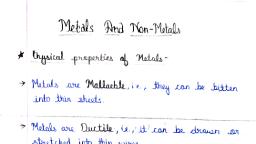 Metals And Non-Metals
★ Physical properties of Metals-
→ Metals are Malleable, i.e., they can be bitten
into thin sheets.
→ Metals are Ductile, i.e., it can be drawn or
stretched into thin wires